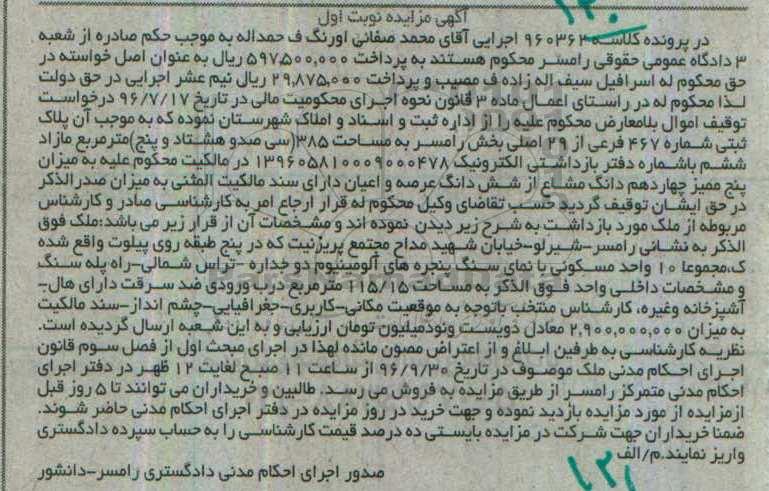 آگهی مزایده نوبت اول
در پرونده کلاسه ۹۶۰۳۶۲ اجرایی آقای محمد صفائی اورنگ ف حمداله به موجب حکم صادره از شعبه
۳ دادگاه عمومی حقوقی رامسر محکوم هستند به پرداخت ۵۹۷,۵۰۰,۰۰۰ ریال به عنوان اصل خواسته در
حق محکوم له اسرافیل سیف اله زاده ف مصیب و پرداخت ۲۹,۸۷۵,۰۰۰ ریال نیم عشر اجرایی در حق دولت
لذا محکوم له در راستای اعمال ماده ۳ قانون نحوه اجرای محکومیت مالی در تاریخ ۹۶/۷/۱۷ درخواست
توقیف اموال بلامعارض محکوم علیه را از اداره ثبت و اسناد و املاک شهرستان نموده که به موجب آن پلاک
ثبتی شماره ۴۶۷ فرعی از ۲۹ اصلی بخش رامسر به مساحت ۳۸۵(سی صدو هشتاد و پنج)مترمربع مازاد
ششم باشماره دفتر بازداشتی الکترونیک ۱۳۹۶۰۵۸۱۰۰۰۹۰۰۰۴۷۸ در مالکیت محکوم علیه به میزان
پنج ممیز چهاردهم دانگ مشاع از شش دانگ عرصه و اعیان دارای سند مالکیت المثنی به میزان صدرالذکر
در حق ایشان توقیف گردید حسب تقاضای وکیل محکوم له قرار ارجاع امر به کارشناسی صادر و کارشناس
مربوطه از ملک مورد بازداشت به شرح زیر دیدن نموده اند و مشخصات آن از قرار زیر می باشد:ملک فوق
الذکر به نشانی رامسر-شیرلو-خیابان شهید مداح مجتمع پریزنیت که در پنج طبقه روی پیلوت واقع شده
ک،مجموعا ۱۰ واحد مسکونی با نمای سنگ پنجره های آلومینیوم دو جداره - تراس شمالی-راه پله سنگ
و مشخصات داخلی واحد فوق الذکر به مساحت ۱۱۵/۱۵ مترمربع درب ورودی ضد سرقت دارای هال-
آشپزخانه وغیره، کارشناس منتخب باتوجه به موقعیت مکانی-کاربری-جغرافیایی-چشم انداز-سند مالکیت
به میزان ۲,۹۰۰,۰۰۰,۰۰۰ معادل دویست ونودمیلیون تومان ارزیابی و به این شعبه ارسال گردیده است.
نظریه کارشناسی به طرفین ابلاغ و از اعتراض مصون مانده لهذا در اجرای مبحث اول از فصل سوم قانون
اجرای احکام مدنی ملک موصوف در تاریخ ۹۶/۹/۳۰ از ساعت ۱۱ صبح لغایت ۱۲ ظهر در دفتر اجرای
احکام مدنی متمرکز رامسر از طریق مزایده به فروش می رسد. طالبین و خریداران می توانند تا ۵ روز قبل
ازمزایده از مورد مزایده بازدید نموده و جهت خرید در روز مزایده در دفتر اجرای احکام مدنی حاضر شوند.
ضمنا خریداران جهت شرکت در مزایده بایستی ده درصد قیمت کارشناسی را به حساب سپرده دادگستری
واریز نمایند.م/الف
صدور اجرای احکام مدنی دادگستری رامسر-دانشور